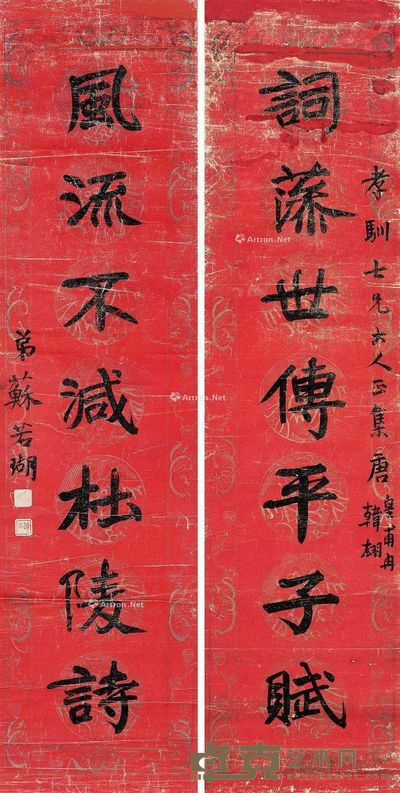 詞藻世傳平子賦
孝馴士兄大人正集唐 皇甫冉 韓翃
風流不減杜陵詩
弟蘇若瑚
Artron.Net
Artron.Net
Artron.Net
Artron.Net
卓克艺术网